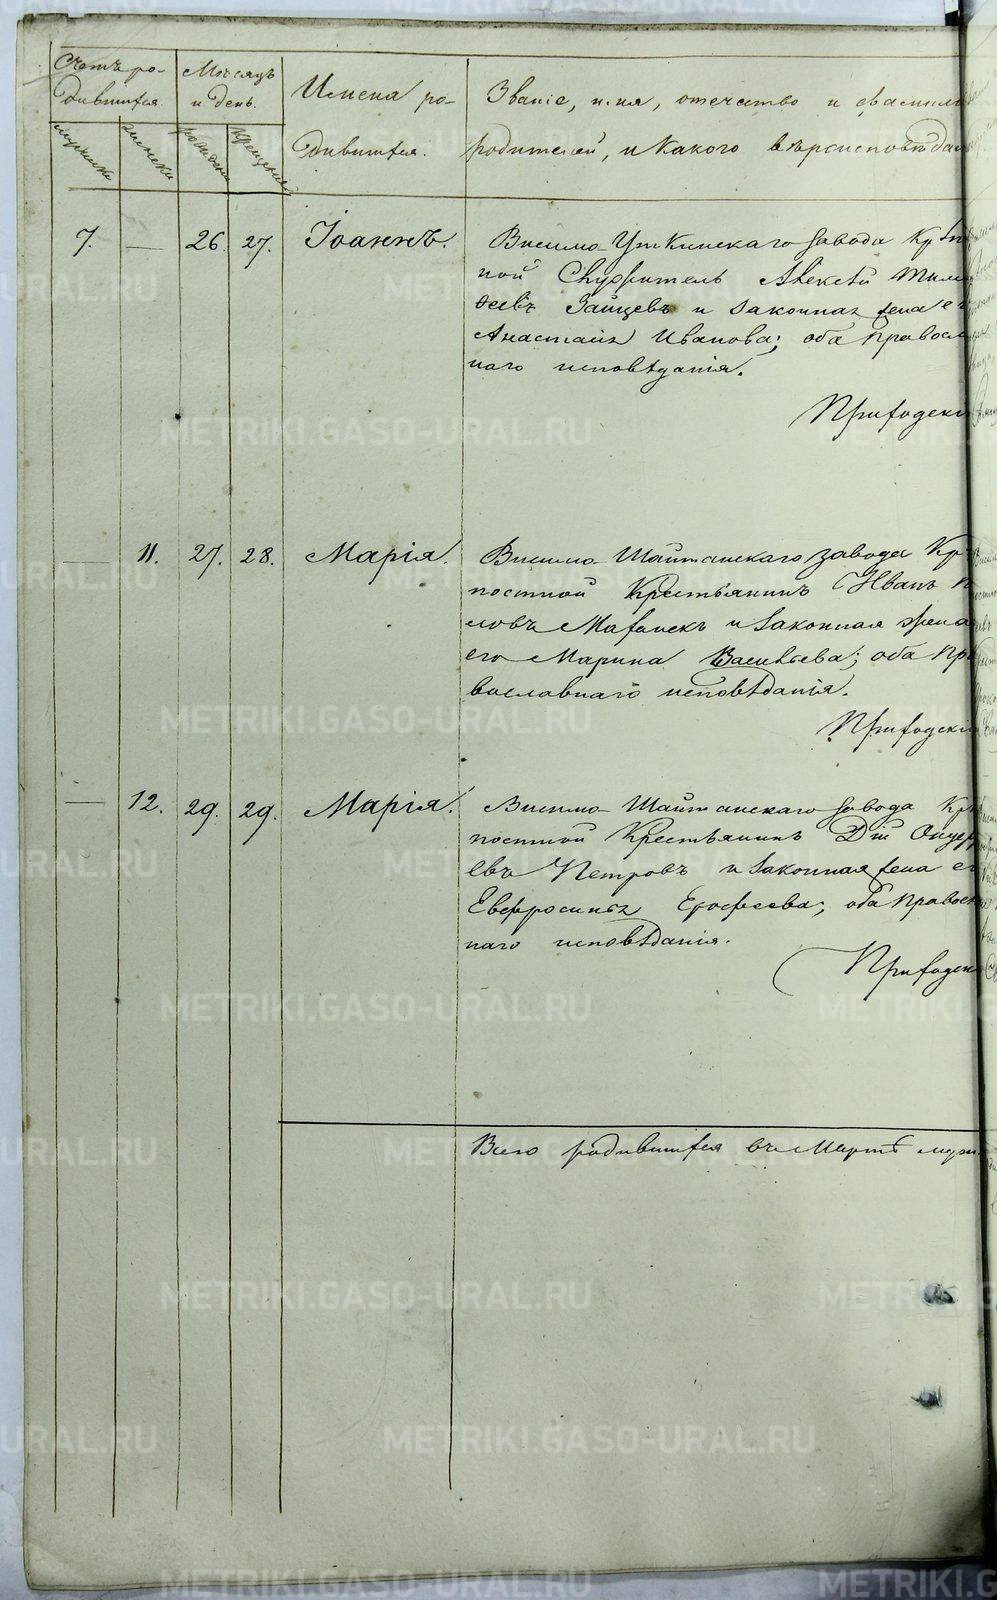 Счетъ ро-
дившихся
Мѣсяцъ
и день.
Имена ро-
дившихся.
Званіе, имя, отчество и фамилі
родителей, и какого вѣроисповѣдан
мужеска
женска
рожденія
крещенія
7. — 26. 27. Іоаннъ.
Висимо Уткинскаго завода Крѣп
ной Алексѣй Тимо
феевъ Зайцевъ и законная жена ег
Анастасія Иванова; оба Правосл
наго исповѣданія.
Приходскі
— 11. 27. 28. Марія.
Висимо Шайтанскаго завода Крѣ
постной Крестьянинъ Иванъ
и законная жена
его Марина Васильева; оба Пра
вославнаго исповѣданія.
Приходскі
— 12. 29. 29. Марія.
Висимо Шайтанскаго завода Крѣ
постной Крестьянинъ
евъ Петровъ и законная жена ег
Евфросинія Ерофеева; оба Правосл
наго исповѣданія.
Приходск
Всего родившихся въ Мартѣ муж.
METRIKI.GASO-URAL.RU